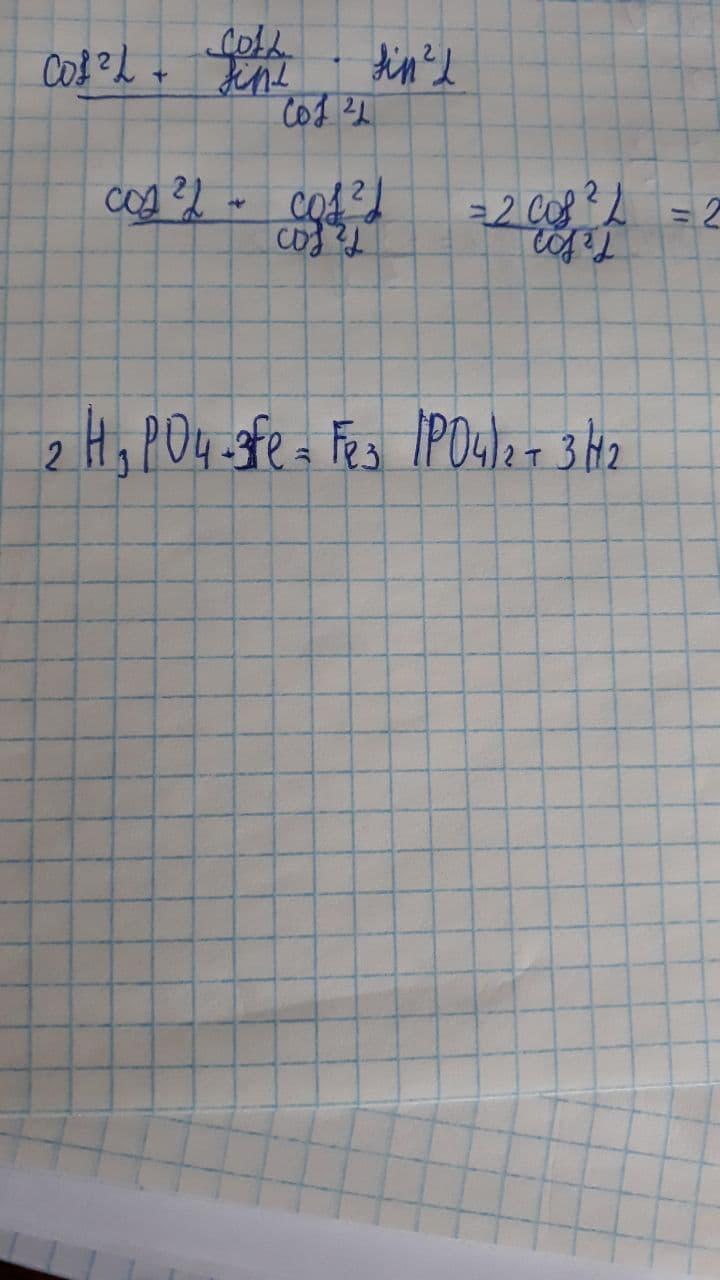 cos²α + cosα/sinα · sin²α
cos²α
cos²α + cos²α = 2 cos²α = 2
cos²α cos²α
2 H₃PO₄ + 3Fe = Fe₃ (PO₄)₂ + 3H₂